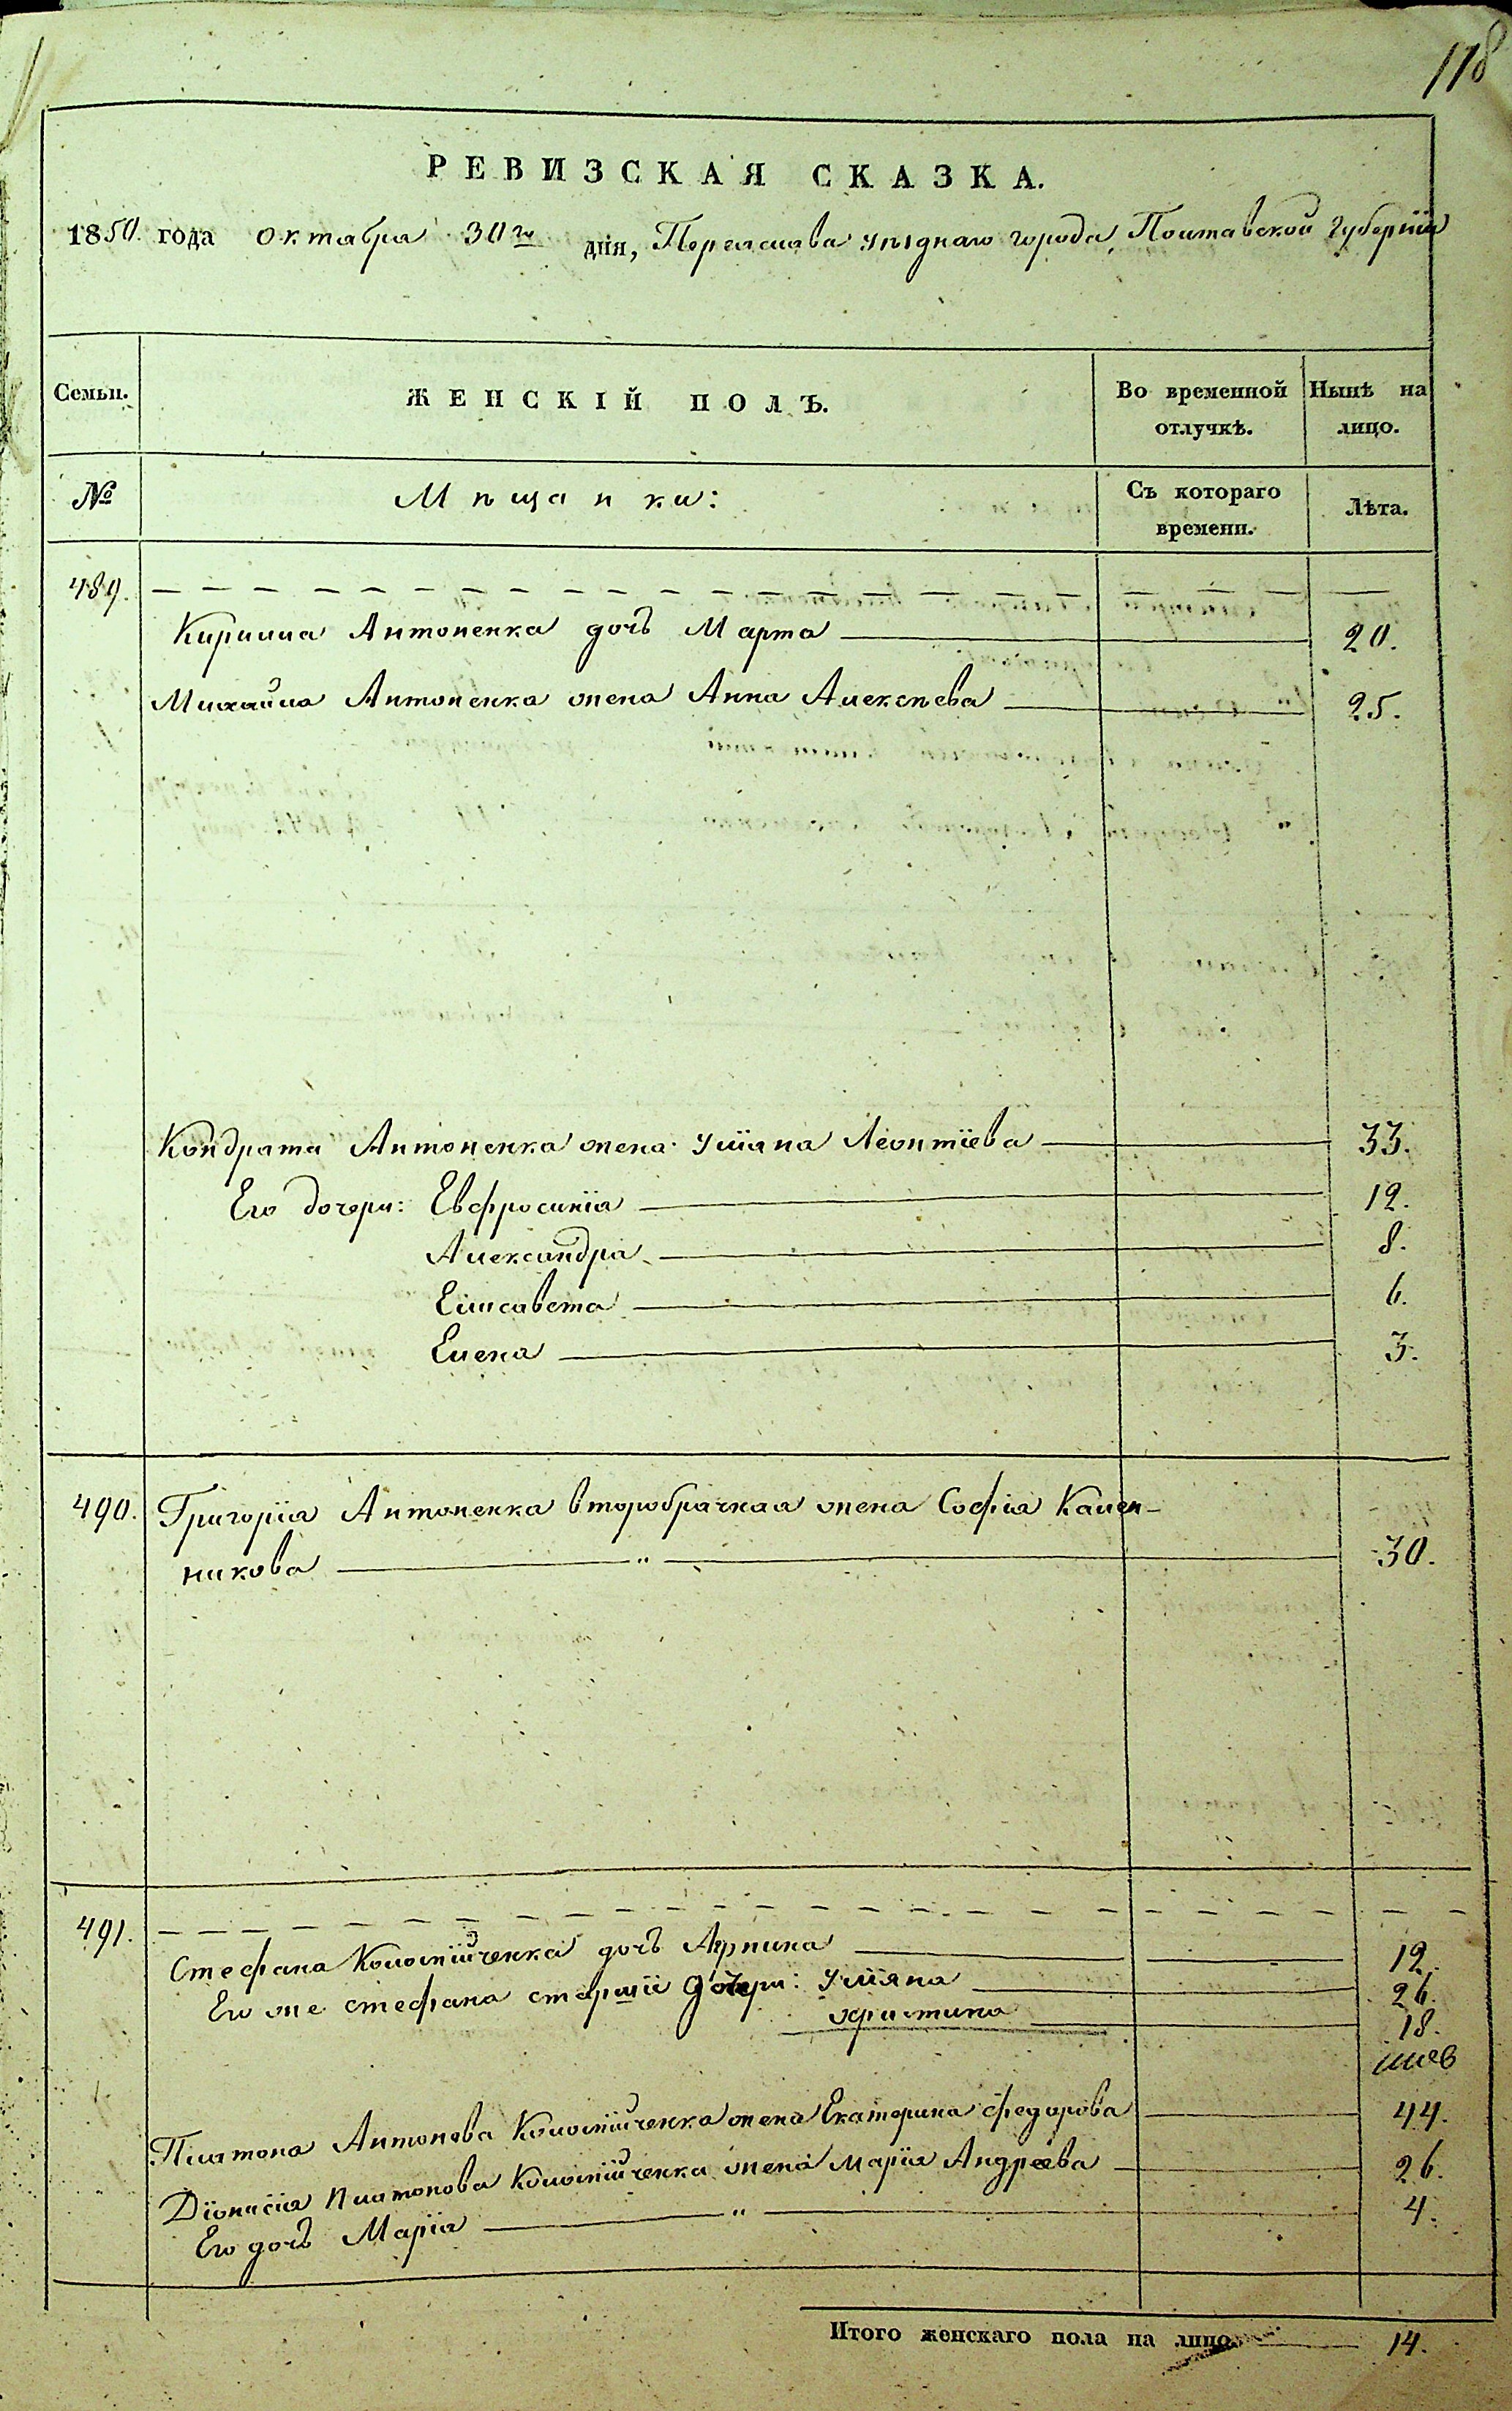 118
РЕВИЗСКАЯ СКАЗКА.
1850. года октября 30го дня, Переяслава уѣзднаго города, Полтавской Губерніи
Семьи. ЖЕНСКІЙ ПОЛЪ. Во временной отлучкѣ. Нынѣ на лицо.
№ Мѣщанки: Съ котораго времени. Лѣта.
489.
Кирилла Антоненка дочь Марта 20.
Михайла Антоненка жена Анна Алексѣева 25.
Кондрата Антоненка жена Уліяна Леонтіева 33.
Его дочери: Евфросинія 12.
Александра 8.
Елисавета 6.
Елена 3.
490. Григорія Антоненка второбрачная жена Софія Кален-
никова " 30.
491.
Стефана Коломійченка дочь Агрипина 12.
Его же Стефана старшіе дочери: Уліяна 26.
Христина 18.
Платона Антонова Коломійченка жена Екатерина Федорова 44.
Діонисія Платонова Коломійченка жена Марія Андреева 26.
Его дочь Марія " 4.
Итого женскаго пола на лицо. 14.